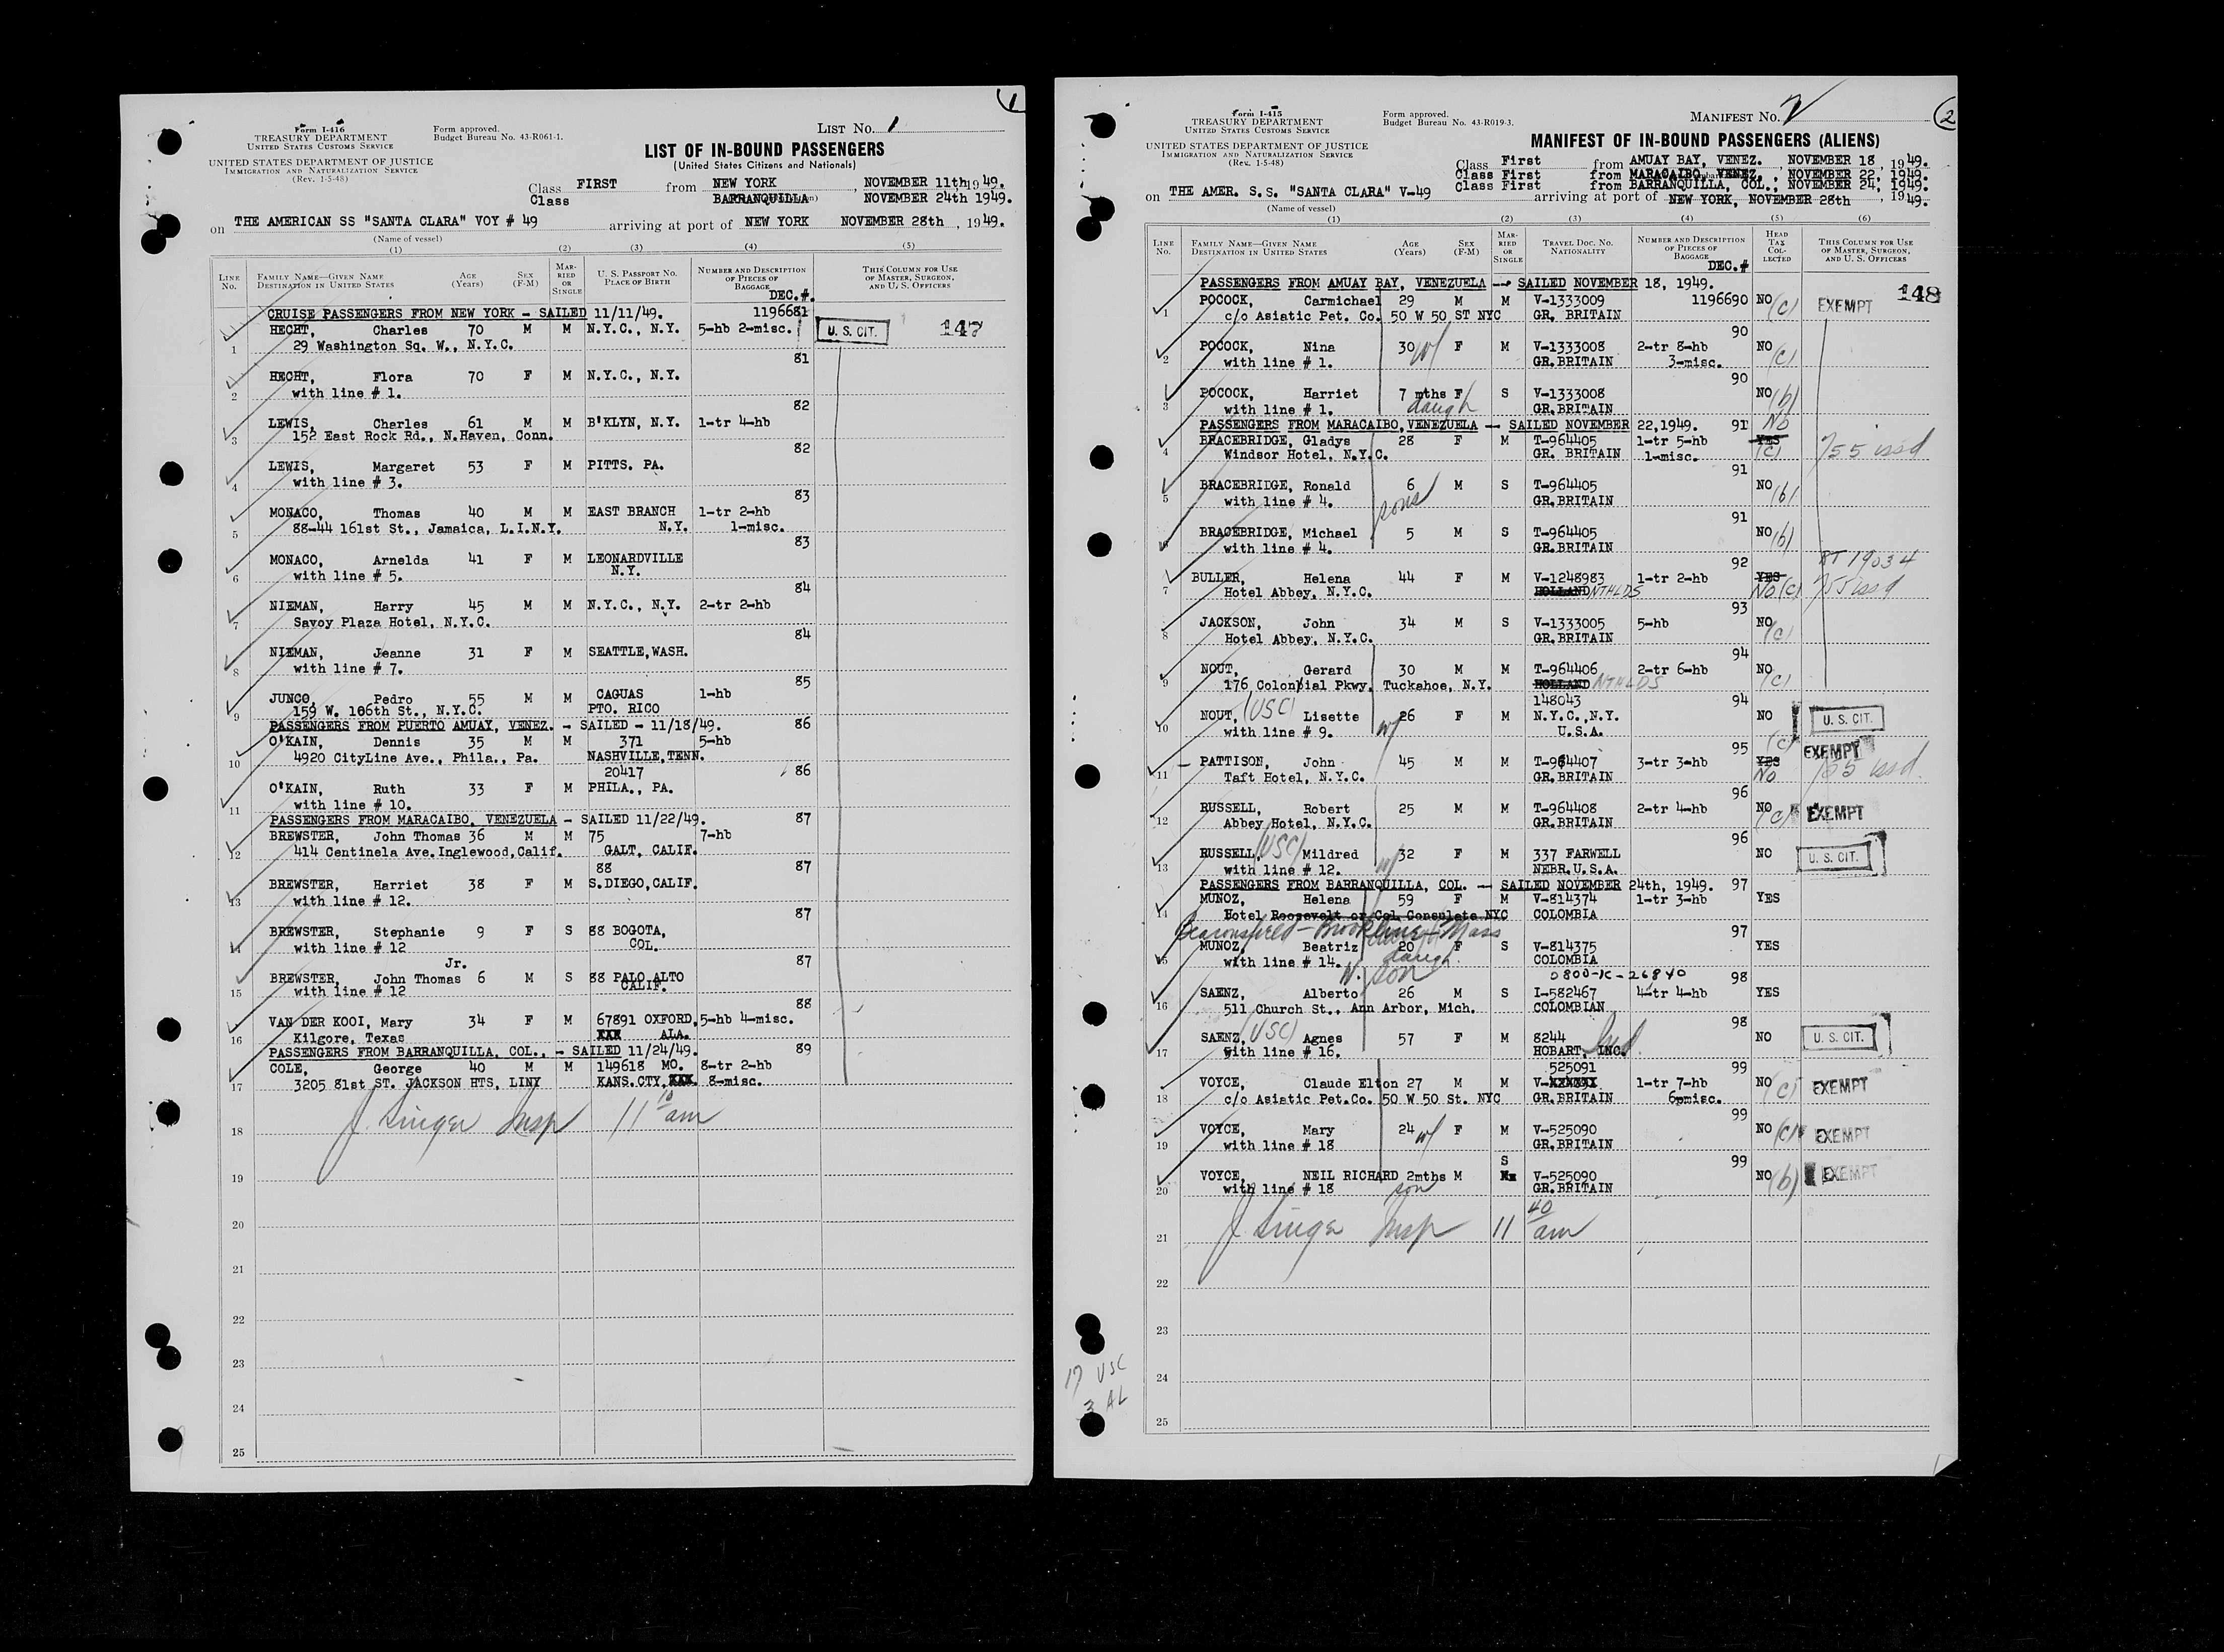 1
Form I-416
TREASURY DEPARTMENT
UNITED STATES CUSTOMS SERVICE
UNITED STATES DEPARTMENT OF JUSTICE
IMMIGRATION AND NATURALIZATION SERVICE
(Rev. 1-5-48)
Form approved.
Budget Bureau No. 43-R061-1.
LIST No. 1
LIST OF IN-BOUND PASSENGERS
(United States Citizens and Nationals)
Class FIRST from NEW YORK, NOVEMBER 11th, 1949.
Class BARRANQUILLA NOVEMBER 24th 1949.
on THE AMERICAN SS "SANTA CLARA" VOY # 49 arriving at port of NEW YORK NOVEMBER 28th, 1949.
(Name of vessel)
(1) (2) (3) (4) (5)
LINE No. FAMILY NAME—GIVEN NAME DESTINATION IN UNITED STATES AGE (Years) SEX (F-M) MARRIED OR SINGLE U. S. PASSPORT No. PLACE OF BIRTH NUMBER AND DESCRIPTION OF PIECES OF BAGGAGE DEC.#. THIS COLUMN FOR USE OF MASTER, SURGEON, AND U. S. OFFICERS
CRUISE PASSENGERS FROM NEW YORK - SAILED 11/11/49. 1196681
1 HECHT, Charles 70 M M N.Y.C., N.Y. 5-hb 2-misc. U. S. CIT. 147
29 Washington Sq. W., N.Y.C.
81
2 HECHT, Flora 70 F M N.Y.C., N.Y.
with line # 1.
82
3 LEWIS, Charles 61 M M B'KLYN, N.Y. 1-tr 4-hb
152 East Rock Rd., N.Haven, Conn.
82
4 LEWIS, Margaret 53 F M PITTS. PA.
with line # 3.
83
5 MONACO, Thomas 40 M M EAST BRANCH 1-tr 2-hb
88-44 161st St., Jamaica, L.I.N.Y. N.Y. 1-misc.
83
6 MONACO, Arnelda 41 F M LEONARDVILLE
with line # 5. N.Y.
84
7 NIEMAN, Harry 45 M M N.Y.C., N.Y. 2-tr 2-hb
Savoy Plaza Hotel, N.Y.C.
84
8 NIEMAN, Jeanne 31 F M SEATTLE,WASH.
with line # 7.
85
9 JUNCO, Pedro 55 M M CAGUAS 1-hb
159 W. 106th St., N.Y.C. PTO. RICO
PASSENGERS FROM PUERTO AMUAY, VENEZ. - SAILED - 11/18/49. 86
10 O'KAIN, Dennis 35 M M 371 5-hb
4920 CityLine Ave., Phila., Pa. NASHVILLE,TENN.
20417 86
11 O'KAIN, Ruth 33 F M PHILA., PA.
with line # 10.
PASSENGERS FROM MARACAIBO, VENEZUELA - SAILED 11/22/49. 87
12 BREWSTER, John Thomas 36 M M 75 7-hb
414 Centinela Ave.Inglewood,Calif. GALT, CALIF.
88 87
13 BREWSTER, Harriet 38 F M S.DIEGO,CALIF.
with line # 12.
87
14 BREWSTER, Stephanie 9 F S 88 BOGOTA,
with line # 12 COL.
Jr. 87
15 BREWSTER, John Thomas 6 M S 88 PALO ALTO
with line # 12 CALIF.
88
16 VAN DER KOOI, Mary 34 F M 67891 OXFORD, 5-hb 4-misc.
Kilgore, Texas XXX ALA.
PASSENGERS FROM BARRANQUILLA, COL., - SAILED 11/24/49. 89
17 COLE, George 40 M M 149618 MO. 8-tr 2-hb
3205 81st ST. JACKSON HTS, LINY KANS.CTY, XXX. 8-misc.
18 J. Singer Insp 11 10 am
19
20
21
22
23
24
25
2
Form I-415
TREASURY DEPARTMENT
UNITED STATES CUSTOMS SERVICE
UNITED STATES DEPARTMENT OF JUSTICE
IMMIGRATION AND NATURALIZATION SERVICE
(Rev. 1-5-48)
Form approved.
Budget Bureau No. 43-R019-3.
MANIFEST No. 2
MANIFEST OF IN-BOUND PASSENGERS (ALIENS)
Class First from AMUAY BAY, VENEZ., NOVEMBER 18, 1949.
Class First from MARACAIBO, VENEZ., NOVEMBER 22, 1949.
Class First from BARRANQUILLA, COL., NOVEMBER 24, 1949.
on THE AMER. S.S. "SANTA CLARA" V-49 arriving at port of NEW YORK, NOVEMBER 28th, 1949.
(Name of vessel)
(1) (2) (3) (4) (5) (6)
LINE No. FAMILY NAME—GIVEN NAME DESTINATION IN UNITED STATES AGE (Years) SEX (F-M) MARRIED OR SINGLE TRAVEL DOC. No. NATIONALITY NUMBER AND DESCRIPTION OF PIECES OF BAGGAGE DEC.# HEAD TAX COLLECTED THIS COLUMN FOR USE OF MASTER, SURGEON, AND U. S. OFFICERS
PASSENGERS FROM AMUAY BAY, VENEZUELA -- SAILED NOVEMBER 18, 1949. 148
1 POCOCK, Carmichael 29 M M V-1333009 1196690 NO (c) EXEMPT
c/o Asiatic Pet. Co. 50 W 50 ST NYC GR. BRITAIN
90
2 POCOCK, Nina 30 w/ F M V-1333008 2-tr 8-hb NO (c)
with line # 1. GR.BRITAIN 3-misc.
90
3 POCOCK, Harriet 7 mths F S V-1333008 NO (b)
with line # 1. daugh GR.BRITAIN
PASSENGERS FROM MARACAIBO, VENEZUELA -- SAILED NOVEMBER 22,1949. 91 No
4 BRACEBRIDGE, Gladys 28 F M T-964405 1-tr 5-hb YES (c) 755 issd
Windsor Hotel, N.Y.C. GR. BRITAIN 1-misc.
91
5 BRACEBRIDGE, Ronald 6 M S T-964405 NO (b)
with line # 4. sons GR.BRITAIN
91
6 BRACEBRIDGE, Michael 5 M S T-964405 NO (b)
with line # 4. GR.BRITAIN
92 RT 19034
7 BULLER, Helena 44 F M V-1248983 1-tr 2-hb YES
Hotel Abbey, N.Y.C. HOLLAND NTHLDS No (c) 755 issd
93
8 JACKSON, John 34 M S V-1333005 5-hb NO (c)
Hotel Abbey, N.Y.C. GR.BRITAIN
94
9 NOUT, Gerard 30 M M T-964406 2-tr 6-hb NO (c)
176 Colonial Pkwy, Tuckahoe, N.Y. HOLLAND NTHLDS
148043 94
10 NOUT, (USC) Lisette w/ 26 F M N.Y.C.,N.Y. NO U. S. CIT.
with line # 9. U.S.A.
95 (c) EXEMPT
11 PATTISON, John 45 M M T-964407 3-tr 3-hb YES No 755 issd.
Taft Hotel, N.Y.C. GR.BRITAIN
96
12 RUSSELL, Robert 25 M M T-964408 2-tr 4-hb NO (c) EXEMPT
Abbey Hotel, N.Y.C. GR.BRITAIN
96
13 RUSSELL, (USC) Mildred w/ 32 F M 337 FARWELL NO U. S. CIT.
with line # 12. NEBR.U.S.A.
PASSENGERS FROM BARRANQUILLA, COL. -- SAILED NOVEMBER 24th, 1949. 97
14 MUNOZ, Helena 59 F M V-814374 1-tr 3-hb YES
Hotel Roosevelt or Col Consulate NYC COLOMBIA
Beaconsfield - Brookline - Mass 97
15 MUNOZ, Beatriz 20 F S V-814375 YES
with line # 14. daugh. COLOMBIA
son 0800-K-26840 98
16 SAENZ, Alberto 26 M S I-582467 4-tr 4-hb YES
511 Church St., Ann Arbor, Mich. COLOMBIAN
98
17 SAENZ, (USC) Agnes 57 F M 8244 NO U. S. CIT.
with line # 16. HOBART, INC. Ind.
525091 99
18 VOYCE, Claude Elton 27 M M V-XXXXXX 1-tr 7-hb NO (c) EXEMPT
c/o Asiatic Pet.Co. 50 W 50 St. NYC GR.BRITAIN 6-misc.
99
19 VOYCE, Mary 24 w/ F M V-525090 NO (c) EXEMPT
with line # 18 GR.BRITAIN
S 99
20 VOYCE, NEIL RICHARD 2mths M V-525090 NO (b) EXEMPT
with line # 18 son GR.BRITAIN
21 J Singer Insp 11 40 am
22
23
24
25
17 USC
3 AL